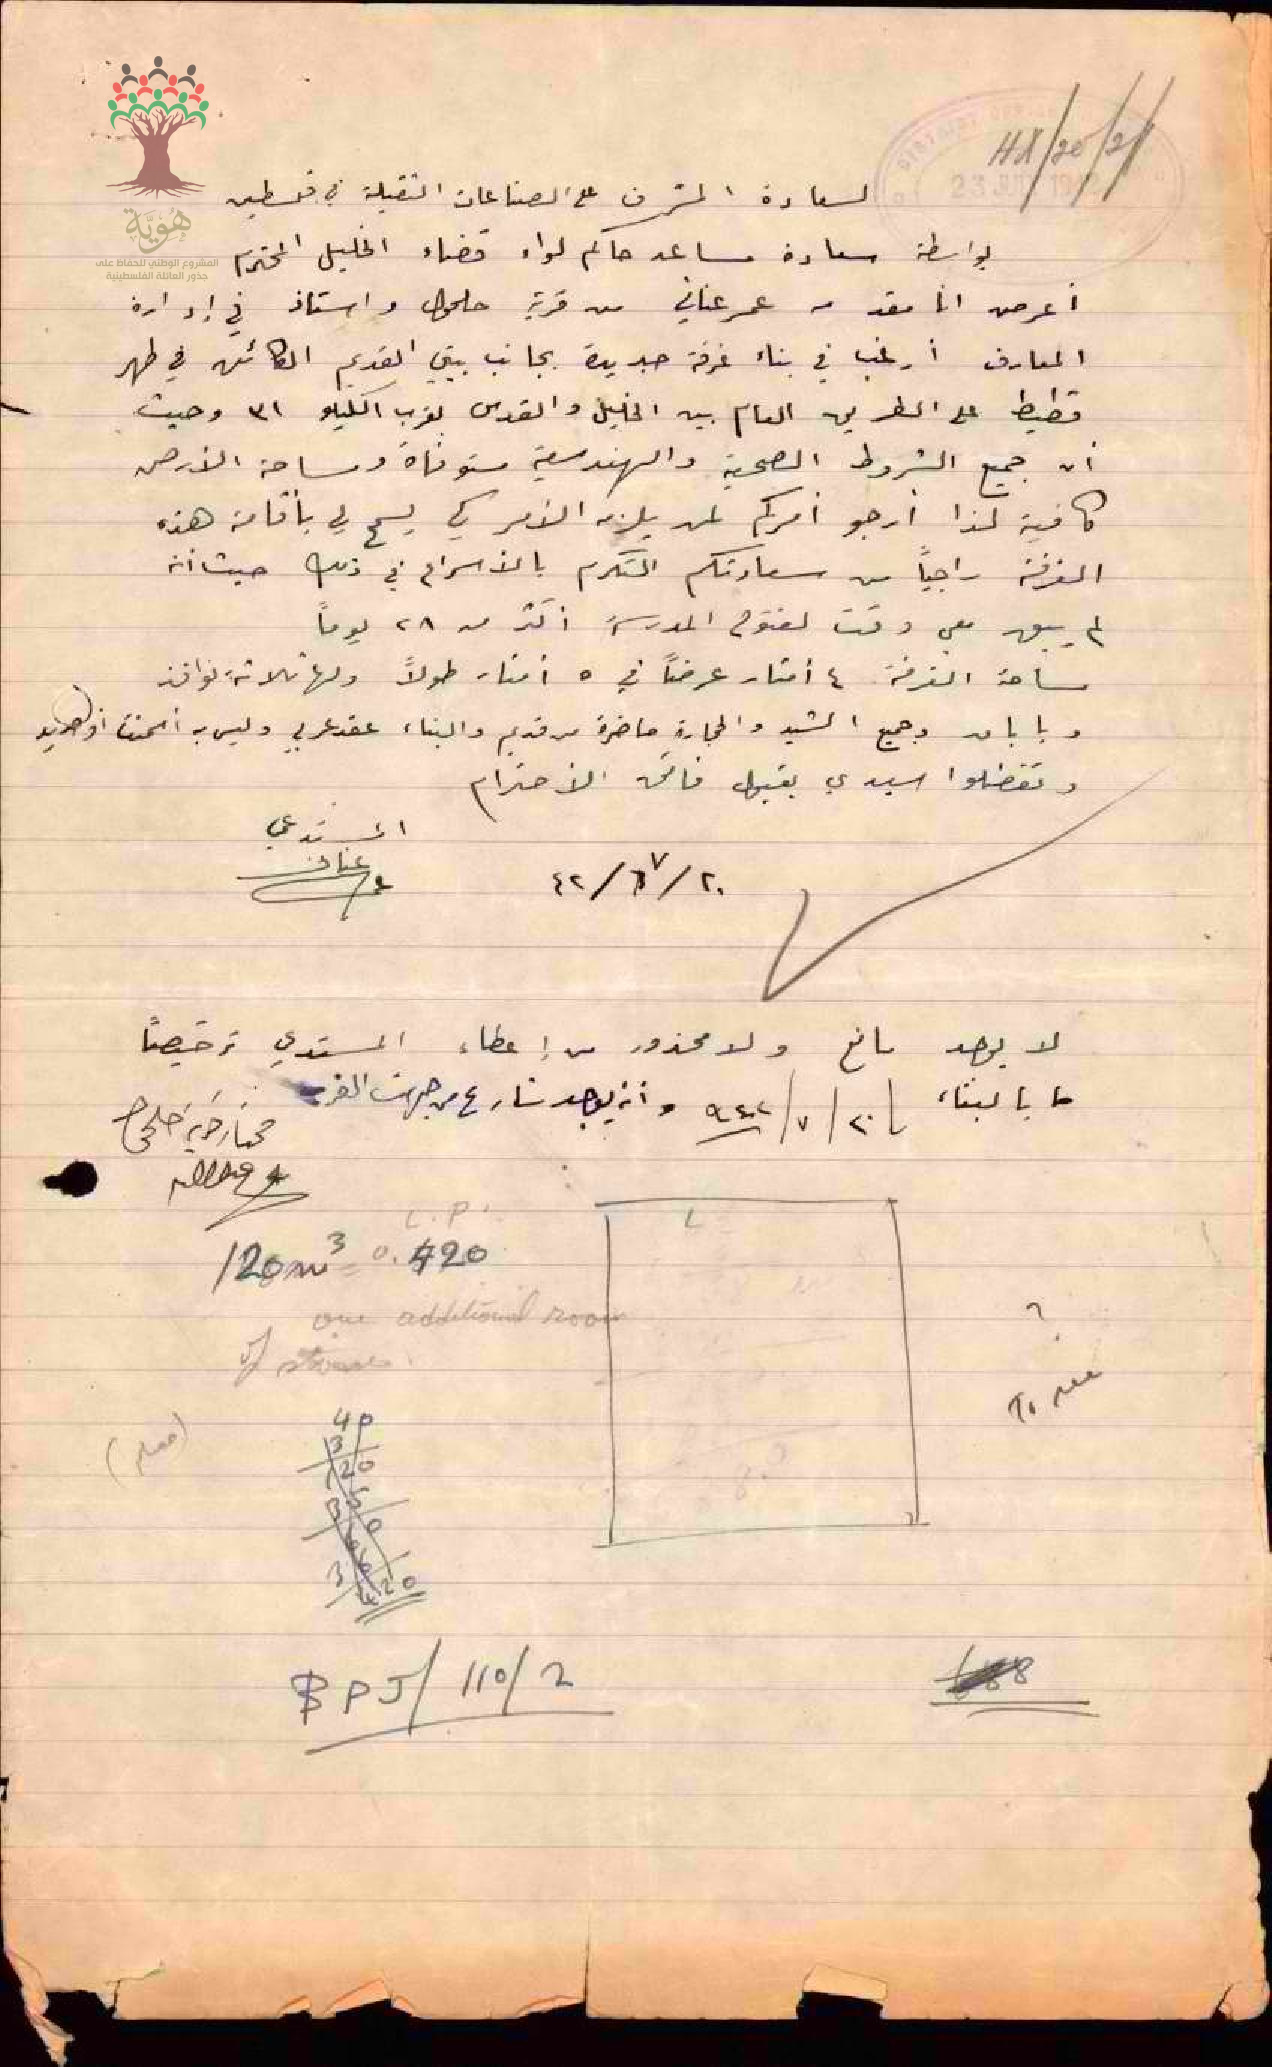 HX/20/21
DISTRICT OFFICE
23 JUL 1942
هُوِيَّة
المشروع الوطني للحفاظ على
جذور العائلة الفلسطينية
لسعادة المشرف على الصناعات الثقيلة في فلسطين
بواسطة سعادة مساعد حاكم لواء قضاء الخليل المحترم
أعرض انا مقدمه عمر عناني من قرية حلحول واستاذ في إدارة
المعارف أرغب في بناء غرفة جديدة بجانب بيتي القديم الكائن في ظهر
قطيط على الطريق العام بين الخليل والقدس بقرب الكيلو ٣١ وحيث
أن جميع الشروط الصحية والهندسية مستوفاة ومساحة الأرض
كافية لذا أرجو أمركم لمن يلزمه الأمر كي يسمح لي بأقامة هذه
الغرفة راجياً من سعادتكم التكرم بالأسراع في ذلك حيث أنه
لم يبق معي وقت لفتوح المدرسة أكثر من ٢٨ يوماً
مساحة الغرفة ٤ أمتار عرضاً في ٥ أمتار طولاً ولها ثلاثة نوافذ
وبابان وجميع الشيد والحجارة حاضرة من قديم والبناء عقد عربي وليس ب أسمنت أو حديد
وتفضلوا سيدي بقبول فائق الأحترام
المستدعي
عمر عناني
٢٠/٧/٤٢
لا يوجد مانع ولا محذور من إعطاء المستدعي ترخيصاً
ما بالبناء ٢٠/٧/٩٤٢ وأنه يوجد شارع من جهة الغرب
مختار قرية حلحول
L.P.
120 m³ = 0.420
one additional room
of stones.
(معلم)
40
3
120
3
420
BPJ/110/2
688